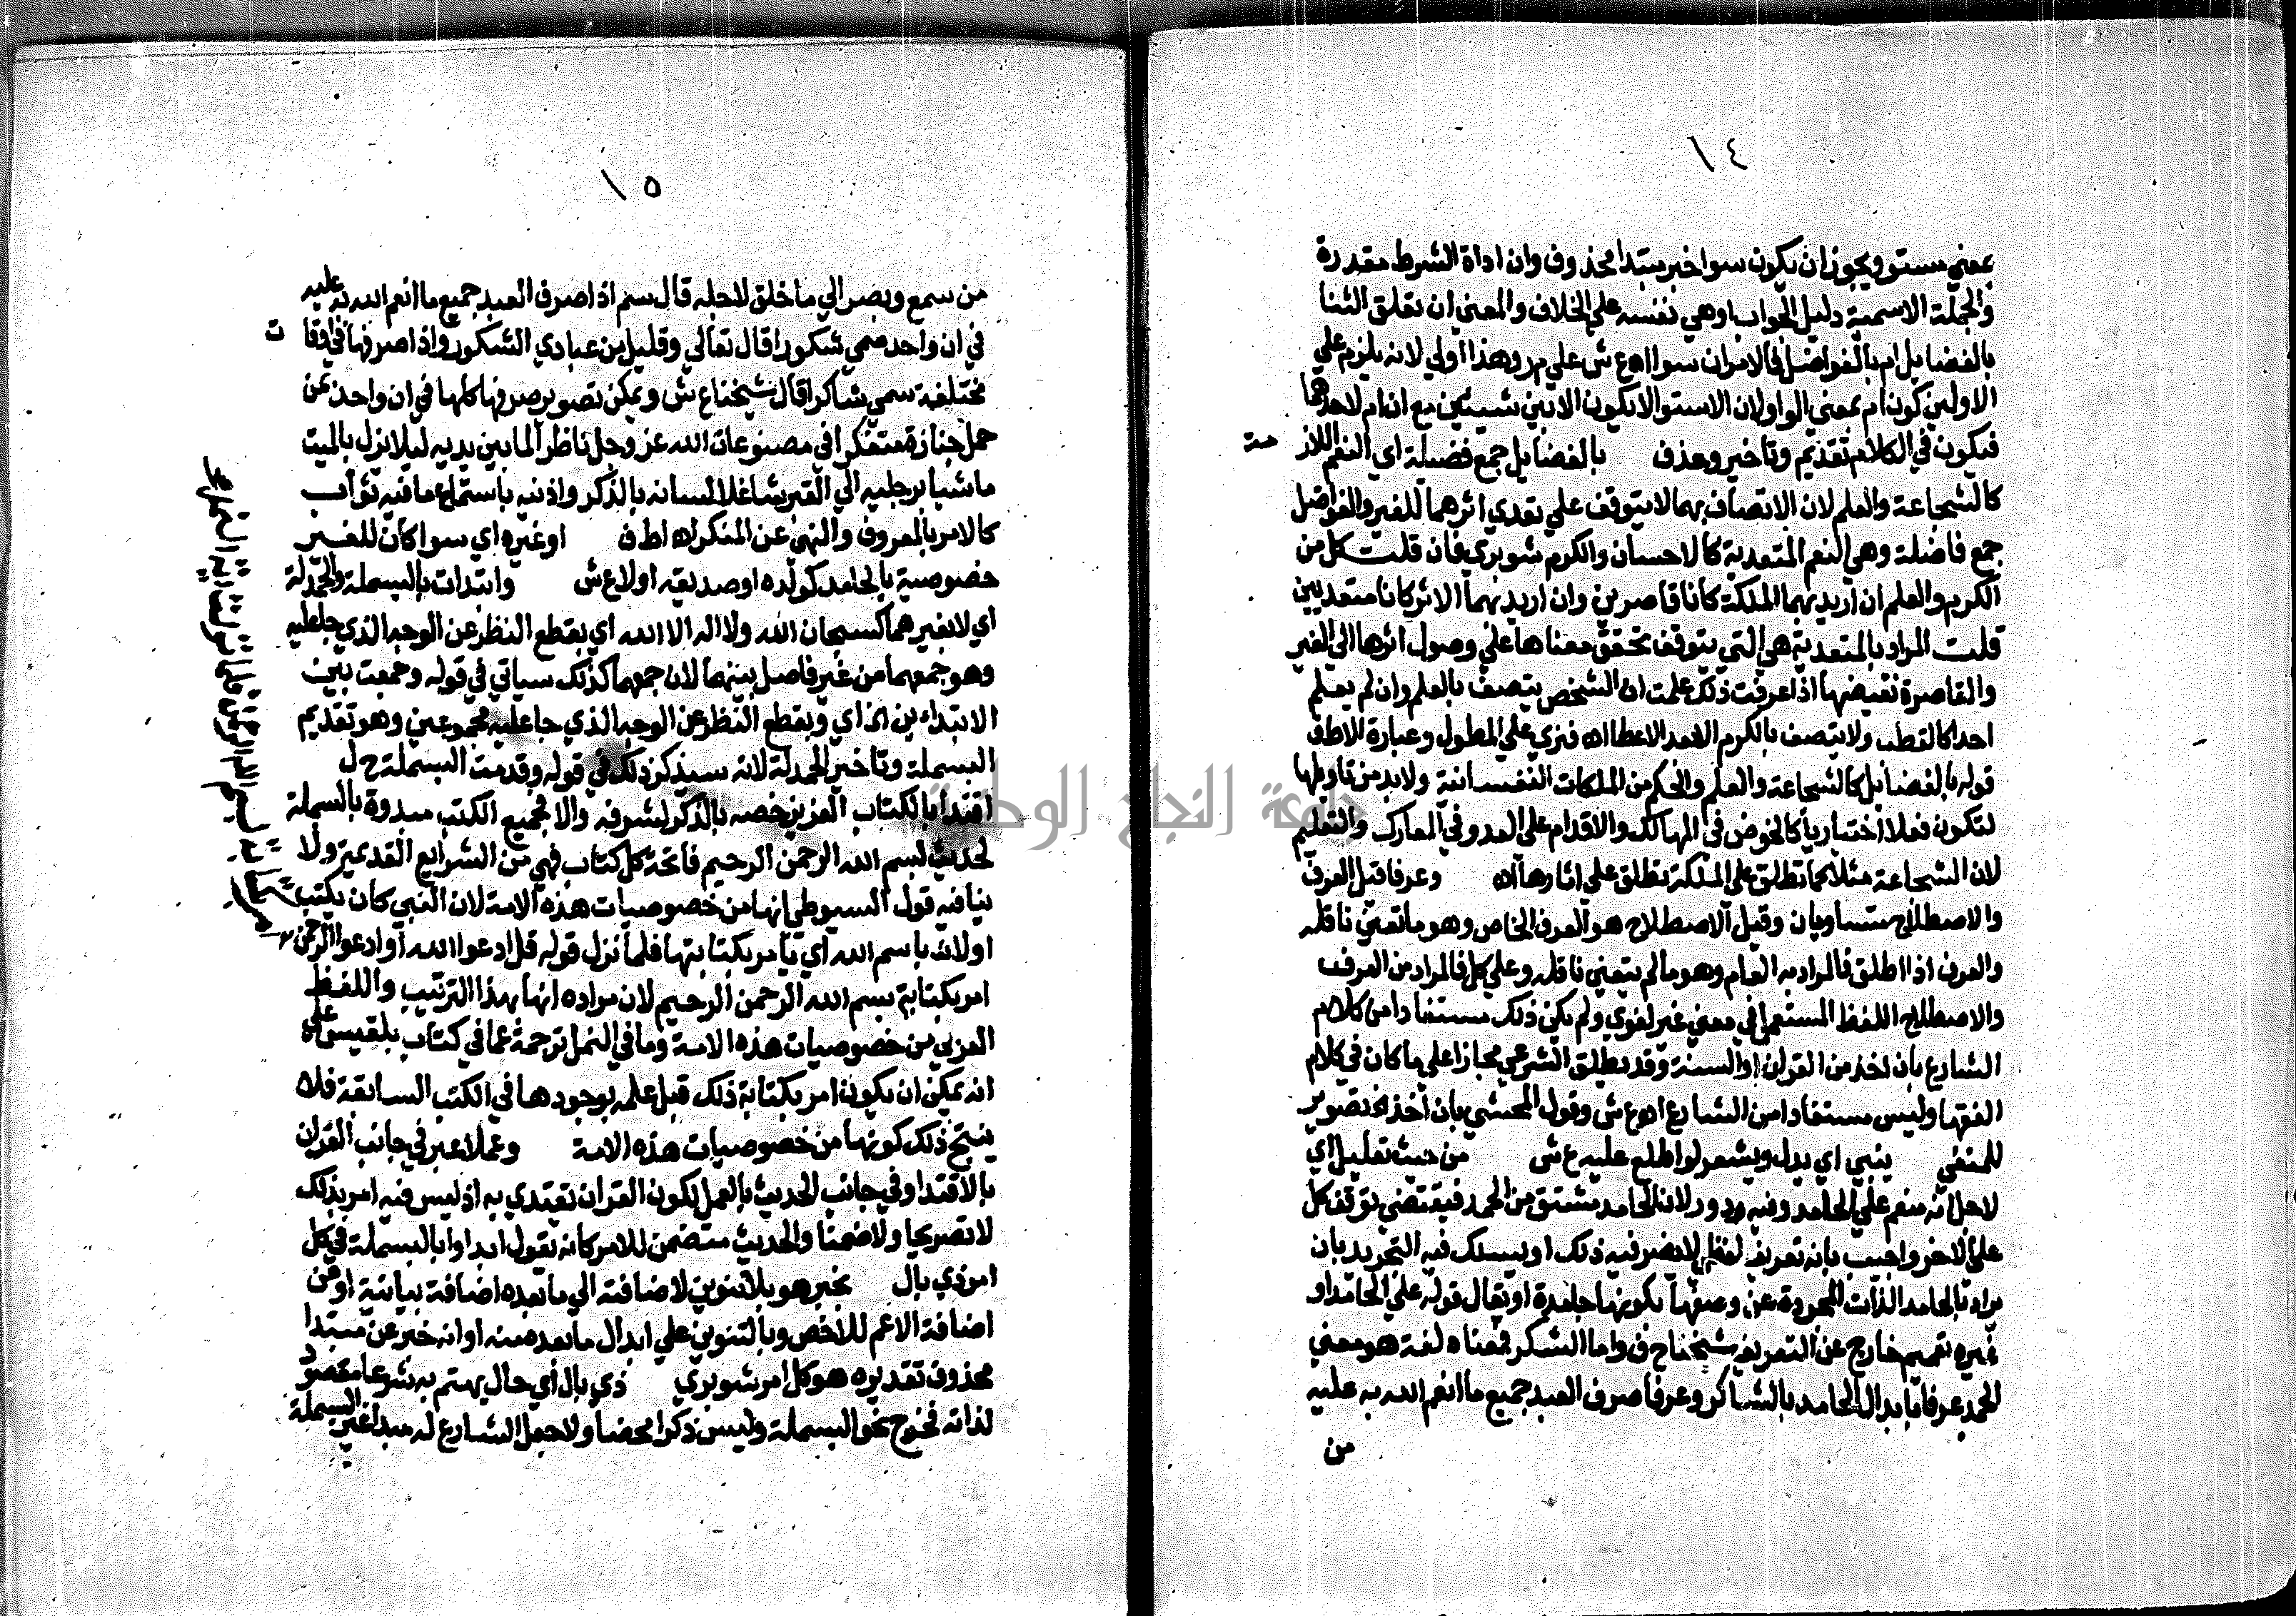 ١٤
بمعني مستو ويجوزان يكون سوا خبر مبتدا محذوف وان اداة الشرط مقدرة
والجملة الاسمية دليل الجواب اوهي نفسه علي الخلاف والمعني ان تعلق الثنا
بالفضايل ام بالفواضل فالامران سوا اهـ ع ش علي م ر وهذا اولي لانه يلزم علي
الاولين كون ام بمعني الواو لان الاستوا لا يكون الا بين شيئين مع ان ام لاحدهما
فيكون في الكلام تقديم وتاخير وحذف بالفضايل جمع فضيلة اي النعم اللازمة
كالشجاعة والعلم لان الاتصاف بهما لا يتوقف علي تعدي اثرهما للغير والفواضل
جمع فاضلة وهي النعم المتعدية كالاحسان والكرم شوبري فان قلت كل من
الكرم والعلم ان اريد بهما الملكة كانا قاصرين وان اريد بهما الاثر كانا متعديين
قلت المراد بالمتعدية هي التي يتوقف تحقق معناها علي وصول اثرها الي الغير
والقاصرة نقيضها اذا عرفت ذلك علمت ان الشخص يتصف بالعلم وان لم يعلم
احدا كالقطب ولا يتصف بالكرم الا بعد الاعطا اهـ فنري علي المطول وعبارة الاطفي
قوله بالفضايل كالشجاعة والعلم والحكم من الملكات النفسانية ولا بد من تاويلها
لتكون فعلا اختياريا كالخوض في المهالك والاقدام علي العدو في المعارك والتعليم
لان الشجاعة مثلا كما تطلق علي الملكة تطلق علي اثارها اهـ وعرفا قيل العرف
والاصطلاح متساويان وقيل الاصطلاح هو العرف الخاص وهو ما تعين ناقله
والعرف اذا اطلق فالمراد به العام وهو ما لم يتعين ناقله وعلي كل فالمراد من العرف
والاصطلاح اللفظ المستعمل في معني غير لغوي ولم يكن ذلك مستفادا من كلام
الشارع بان اخذ من القران او السنة وقد يطلق الشرعي مجازا علي ما كان في كلام
الفقها وليس مستفادا من الشارع اهـ ع ش وقول المحشي بان اخذ اهـ تصوير
للمنفي ينبي اي يدل ويشعر لو اطلع عليه ع ش من حيث تعليل اي
لاجل انه منعم علي الحامد وفيه دور لان الحامد مشتق من الحمد فيقتضي توقف كل
علي الاخر واجيب بانه تعريف لفظي لا يضر فيه ذلك او يسلك فيه التجريد بان
يراد بالحامد الذات المجردة عن وصفها بكونها حامدة او يقال قوله علي الحامد او
غيره تعميم خارج عن التعريف شيخنا ح ف واما الشكر فمعناه لغة هو معني
الحمد عرفا بابدال الحامد بالشاكر وعرفا صرف العبد جميع ما انعم الله به عليه
من
١٥
من سمع وبصر الي ما خلق لاجله قال سم اذا صرف العبد جميع ما انعم الله به عليه
في ان واحد سمي شكورا قال تعالي وقليل من عبادي الشكور واذا صرفها في اوقات
مختلفة سمي شاكرا قال شيخنا ع ش ويمكن تصوير صرفها كلها في ان واحد بمن
حمل جنازة متفكرا في مصنوعات الله عز وجل ناظرا لما بين يديه ليلا يزل بالميت
ماشيا برجليه الي القبر شاغلا لسانه بالذكر واذنيه باستماع ما فيه ثواب
كالامر بالمعروف والنهي عن المنكر اهـ اط ف او غيره اي سوا كان للغير
خصوصية بالحامد كولده او صديقه او لا ع ش وابتدات بالبسملة والحمدلة
اي لا بغيرهما كسبحان الله ولا اله الا الله اي بقطع النظر عن الوجه الذي جا عليه
وهو جمعهما من غير فاصل بينهما لان جمعهما كذلك سياتي في قوله وجمعت بين
الابتداءين اهـ اي وبقطع النظر عن الوجه الذي جا عليه مجموعين وهو تقديم
البسملة وتاخير الحمدلة لانه سيذكر ذلك في قوله وقدمت البسملة ح ل
اقتدا بالكتاب العزيز خصه بالذكر لشرفه والا فجميع الكتب مبدوة بالبسملة
لحديث بسم الله الرحمن الرحيم فاتحة كل كتاب فهي من الشرايع القديمة ولا
ينافيه قول السيوطي انها من خصوصيات هذه الامة لان النبي كان يكتب
اولا باسم الله اي يامر بكتابتها فلما نزل قوله قل ادعوا الله او ادعوا الرحمن
امر بكتابة بسم الله الرحمن الرحيم لان مراده انها بهذا الترتيب واللفظ
العربي من خصوصيات هذه الامة وما في النمل ترجمة عما في كتاب بلقيس علي
انه يمكن ان يكون امر بكتابة ذلك قبل علمه بوجودها في الكتب السابقة فلا
ينتج ذلك كونها من خصوصيات هذه الامة وعملا عبر في جانب القران
بالاقتدا وفي جانب الحديث بالعمل لكون القران يقتدي به اذ ليس فيه امر بذلك
لا تصريحا ولا ضمنا والحديث متضمن للامر كانه يقول ابداوا بالبسملة في كل
امر ذي بال بخبر هو بلا تنوين لاضافته الي ما بعده اضافة بيانية او من
اضافة الاعم للاخص وبالتنوين علي ابدال ما بعد منه او انه خبر عن مبتدا
محذوف تقديره هو كل امر شوبري ذي بال اي حال يهتم به شرعا مقصود
لذاته فخرج نحو البسملة وليس ذكرا محضا ولا جعل الشارع له مبدا غير البسملة
جامعة النجاح الوطنية